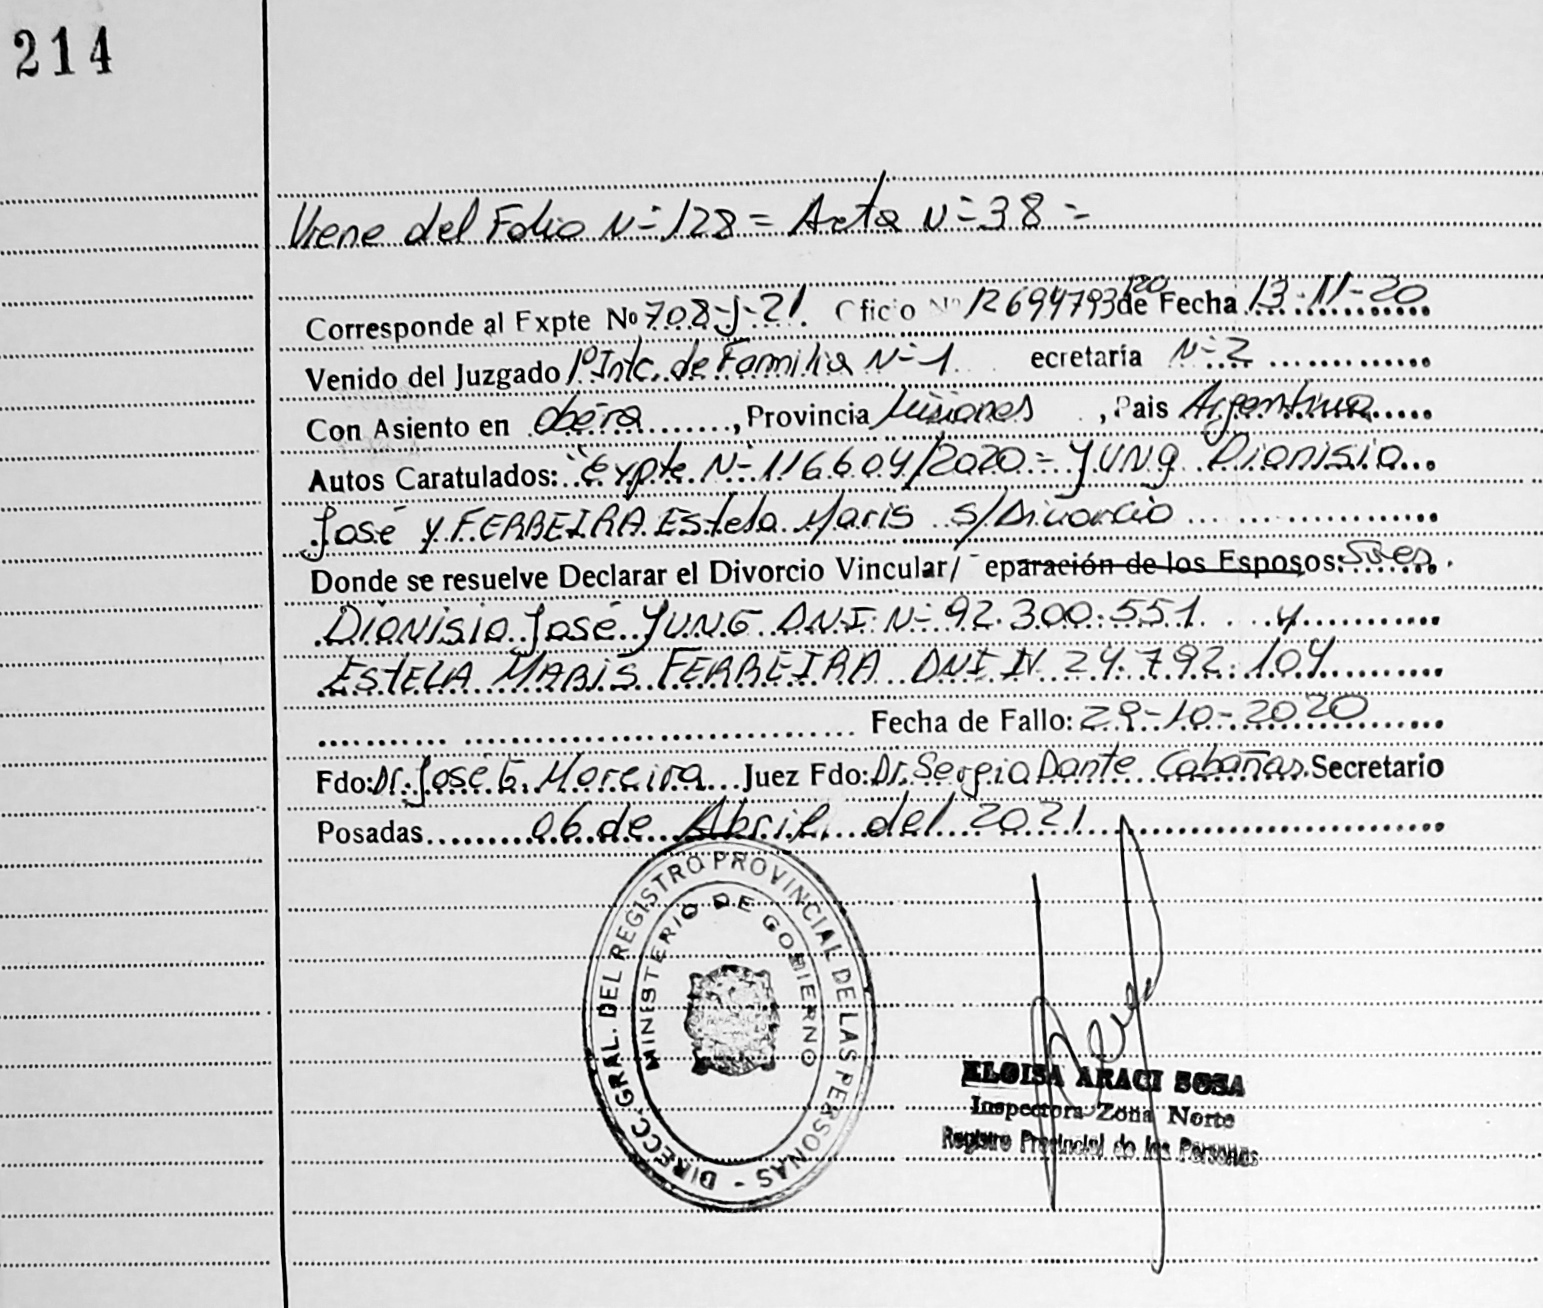 214
Viene del Folio Nº 128 = Acta Nº 38 =
Corresponde al Expte Nº 708-J-21. Oficio Nº 12694793/20 de Fecha 13-11-20
Venido del Juzgado 1º Intc. de Familia Nº 1 ecretaría Nº 2
Con Asiento en Oberá, Provincia Misiones, Pais Argentina
Autos Caratulados: "Expte Nº 116604/2020 = YUNg Dionisio
José y FERREIRA Estela Maris s/Divorcio
Donde se resuelve Declarar el Divorcio Vincular/ eparación de los Esposos: Sres.
Dionisio José YUNG DNI Nº 92.300.551 y
ESTELA MARIS FERREIRA DNI Nº 24.792.104
Fecha de Fallo: 29-10-2020
Fdo: Dr. José G. Moreira Juez Fdo: Dr. Sergio Dante Cabañas Secretario
Posadas 06 de Abril del 2021
DIRECC. GRAL. DEL REGISTRO PROVINCIAL DE LAS PERSONAS -
MINISTERIO DE GOBIERNO
ELOISA ARACI SOSA
Inspectora Zona Norte
Registro Provincial de las Personas